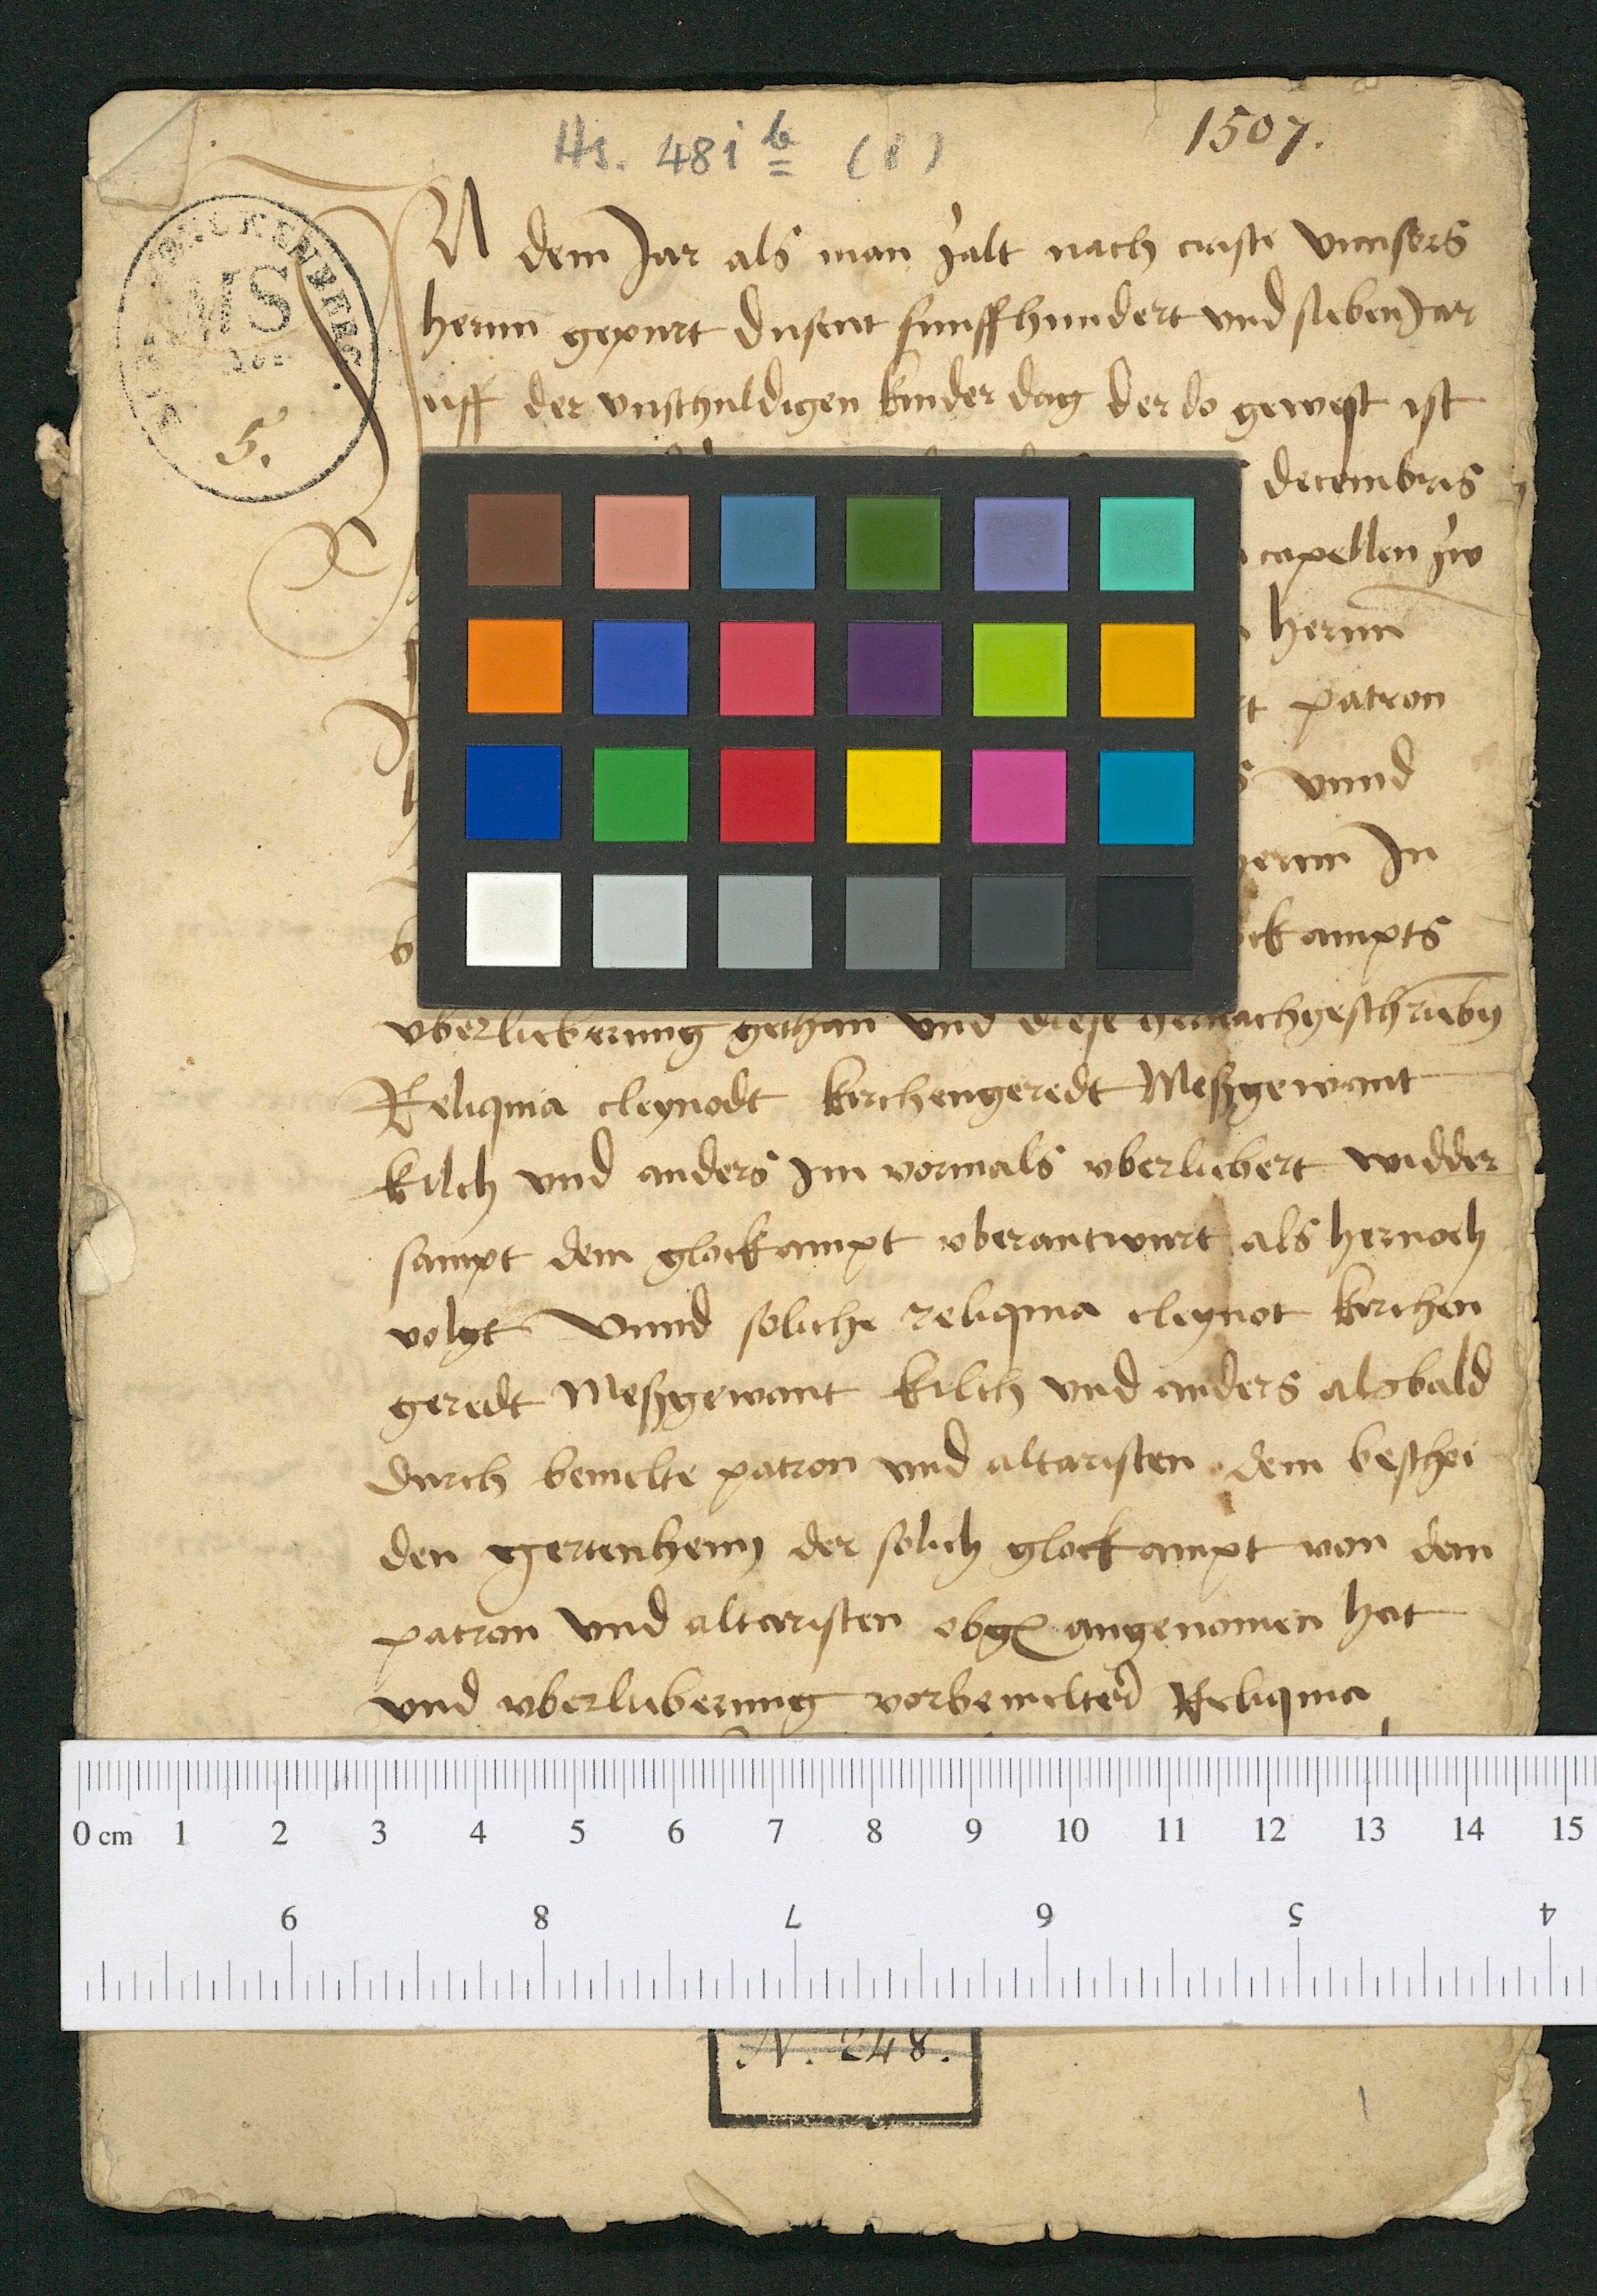 Hs. 481 b (1)
1507.
SENCKENBERG
MS
5.
IN dem Jar als man zalt nach cristi vnnsers
hernn gepurt dusent funffhundert vnd sieben Jar
uff der vnschuldigen kinder dag der do gewest ist
decembris
capellen zw
hernn
patron
vnnd
hernn In
ampts
vberlieberung gethan vnd diese hernachgeschrieben
Reliquia cleynodt kirchengeredt Meßgewant
kilch vnd anders Im vormals vberliebert widder
sampt dem glockampt vberantwurt als hernoch
volgt Vnnd soliche reliquia cleynot kirchen
geredt Meßgewant kilch vnd anders alsbald
durch bemelte patron vnd altaristen dem beschei
den der solich glockampt von dem
patron vnd altaristen obg angenomen hat
vnd vberlieberung vorbemelter Reliquia
0 cm 1 2 3 4 5 6 7 8 9 10 11 12 13 14 15
9 8 7 6 5 4
N. 248.